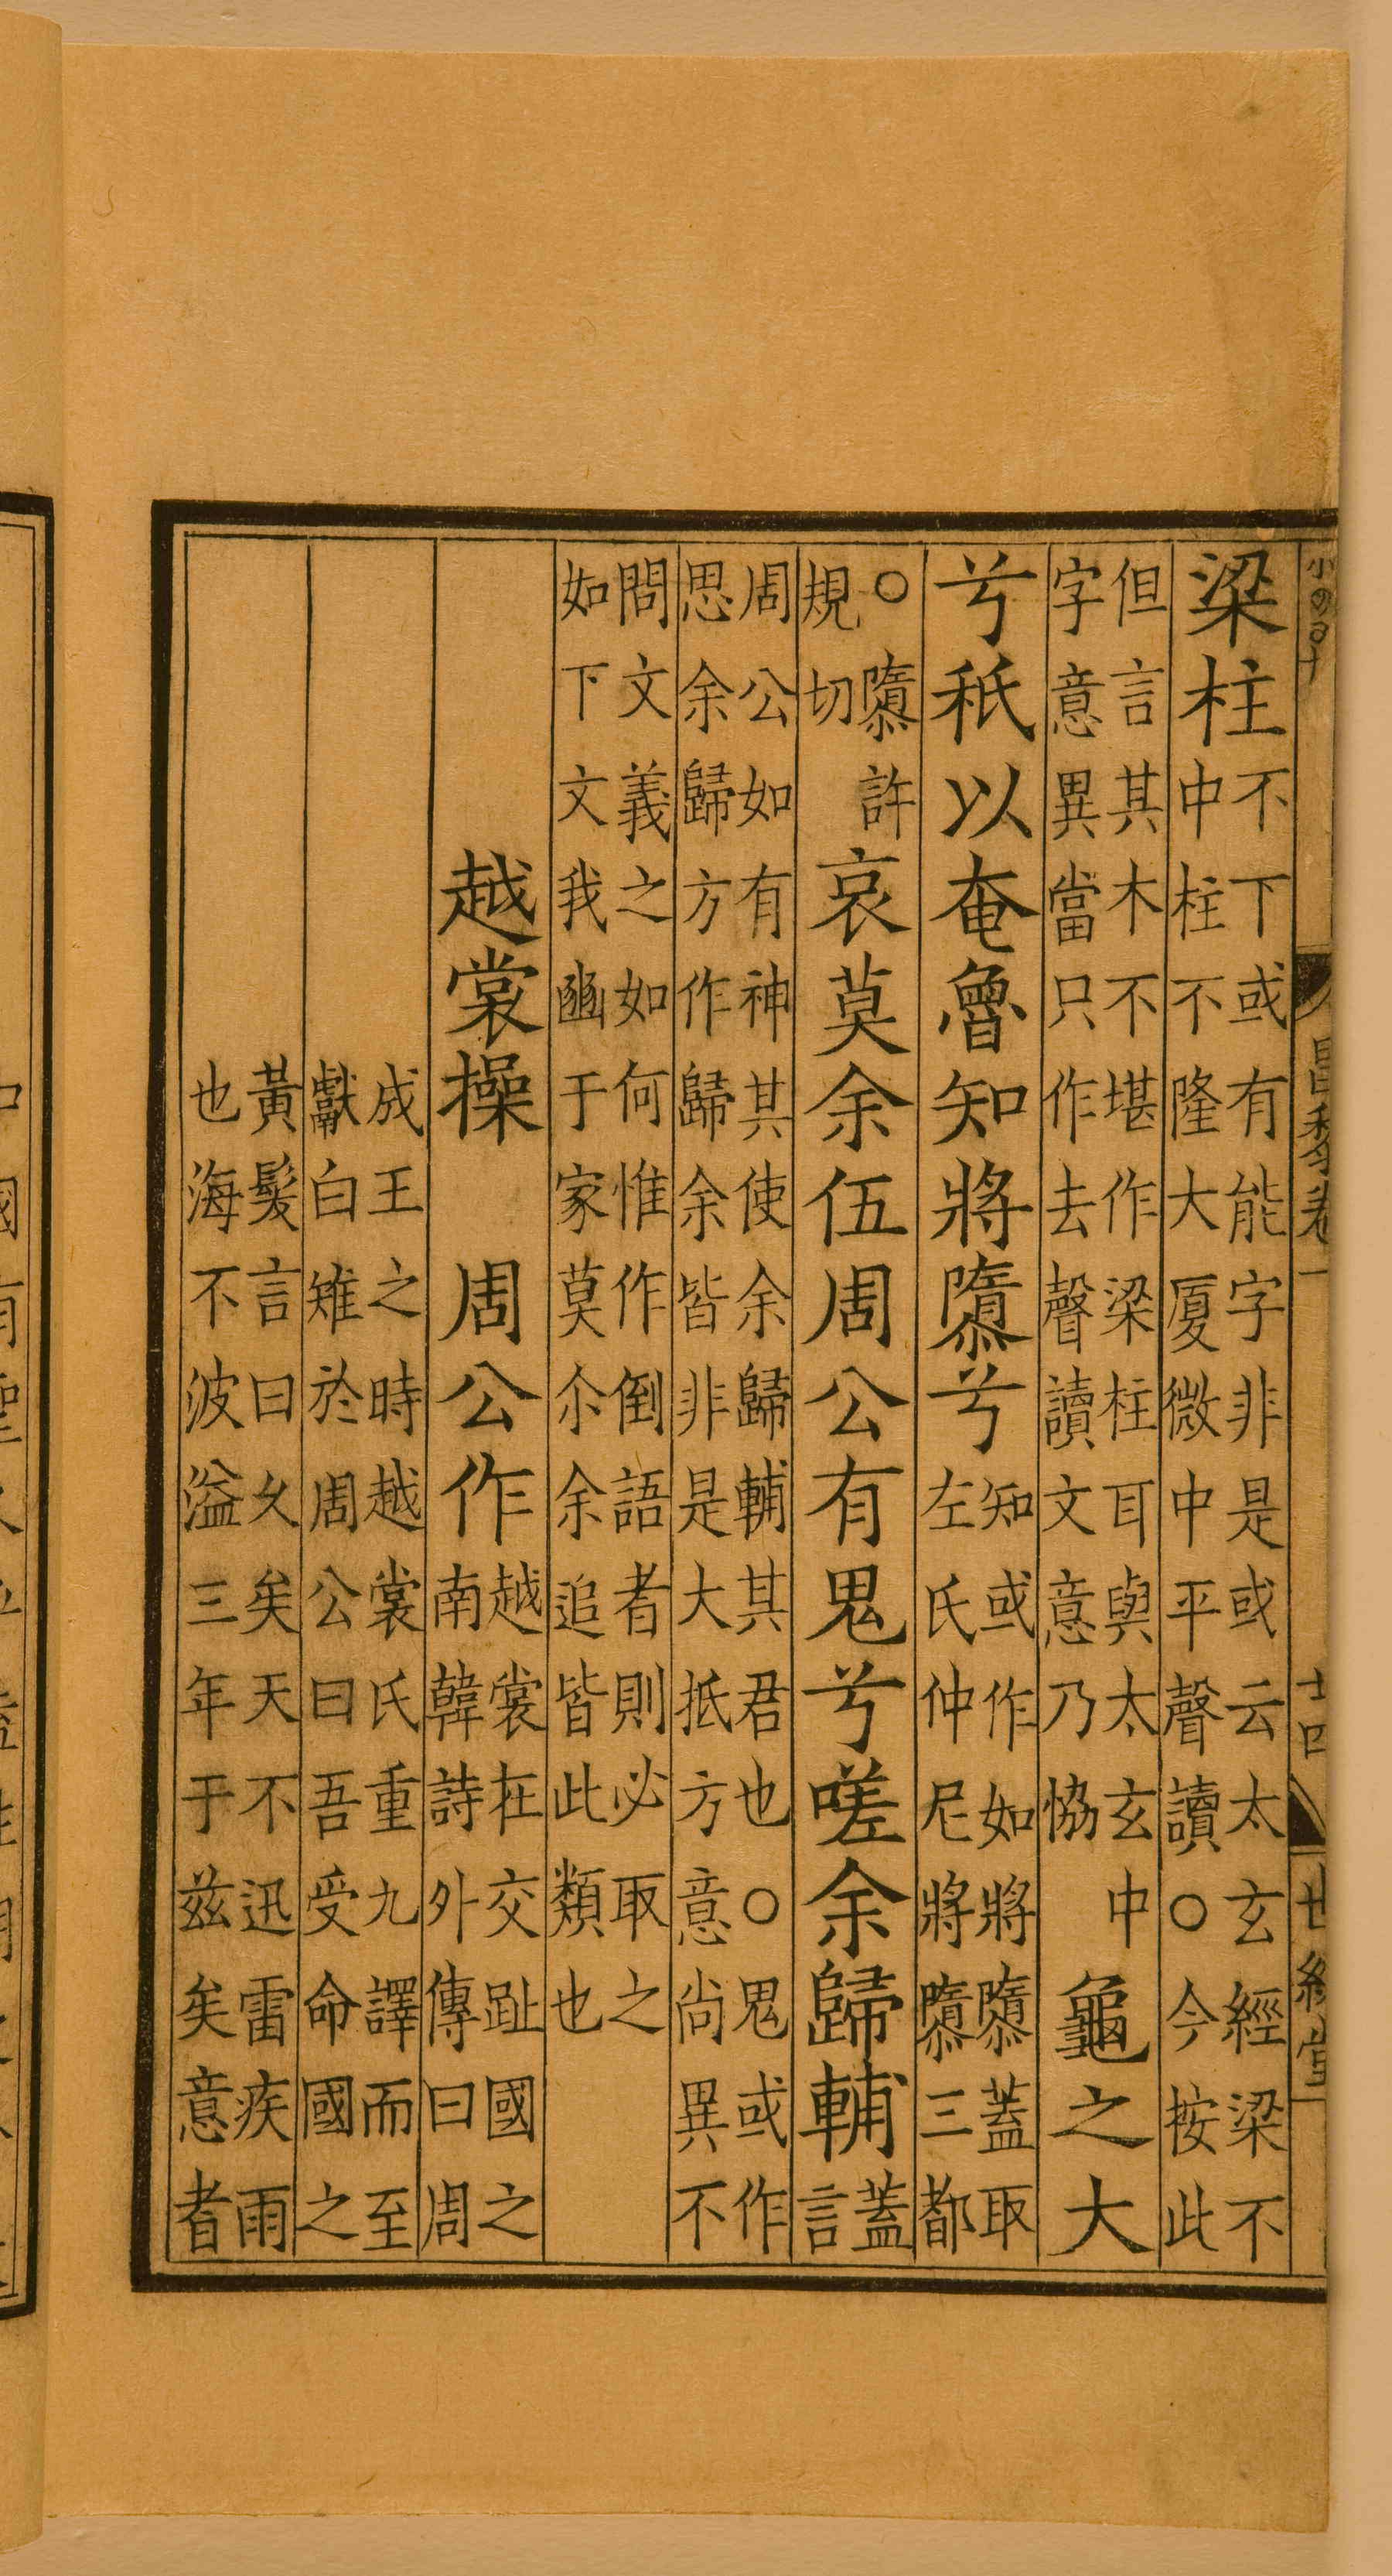 梁柱不下或有能字非是或云太玄經梁不
中柱不隆大厦微中平聲讀○今按此
但言其木不堪作梁柱耳與太玄中
字意異當只作去聲讀文意乃恊龜之大
兮秖以奄魯知將隳兮知或作如將隳蓋取
左氏仲尼將將隳三都
○隳許
規切哀莫余伍周公有鬼兮嗟余歸輔蓋
言
周公如有神其使余歸輔其君也○鬼或作
思余歸方作歸余皆非是大抵方意尚異不
問文義之如何惟作倒語者則必取之
如下文我豳于家莫尒余追皆此類也
越裳操 周公作越裳在交趾國之
南韓詩外傳曰周
成王之時越裳氏重九譯而至
獻白雉於周公曰吾受命國之
黃髮言曰乆矣天不迅雷疾雨
也海不波溢三年于兹矣意者
昌黎卷一
十四
世綵堂